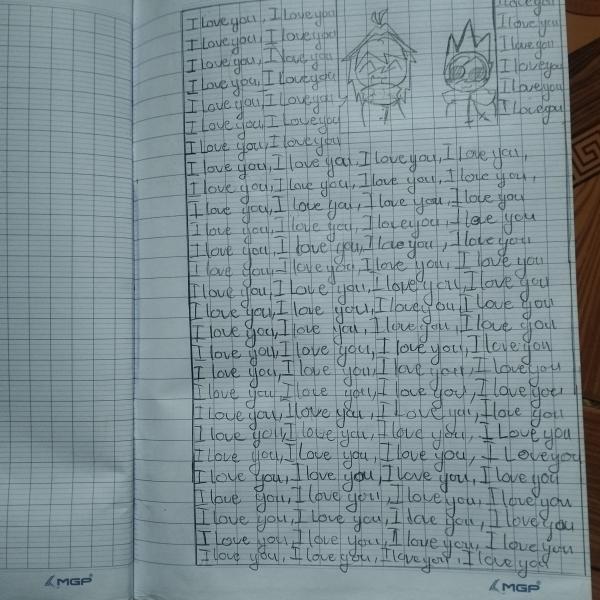 I love you, I love you
I love you, I love you
I love you, I love you
I love you, I love you
I love you, I love you
I love you, I love you
I love you, I love you
I love you
I love you
I love you
I love you
I love you
I love you
I love you, I love you, I love you, I love you,
I love you, I love you, I love you, I love you,
I love you, I love you, I love you, I love you
I love you, I love you, I love you, I love you
I love you, I love you, I love you, I love you
I love you, I love you, I love you, I love you
I love you, I love you, I love you, I love you
I love you, I love you, I love you, I love you
I love you, I love you, I love you, I love you
I love you, I love you, I love you, I love you
I love you, I love you, I love you, I love you
I love you, I love you, I love you, I love you
I love you, I love you, I Love you, I love you
I love you, I love you, I love you, I Love you
I love you, I love you, I love you, I Love you
I love you, I love you, I love you, I love you
I love you, I love you, I love you, I love you
I love you, I love you, I love you, I love you
I love you, I love you, I love you, I love you
I love you, I love you, I love you, I love you
MGP MGP